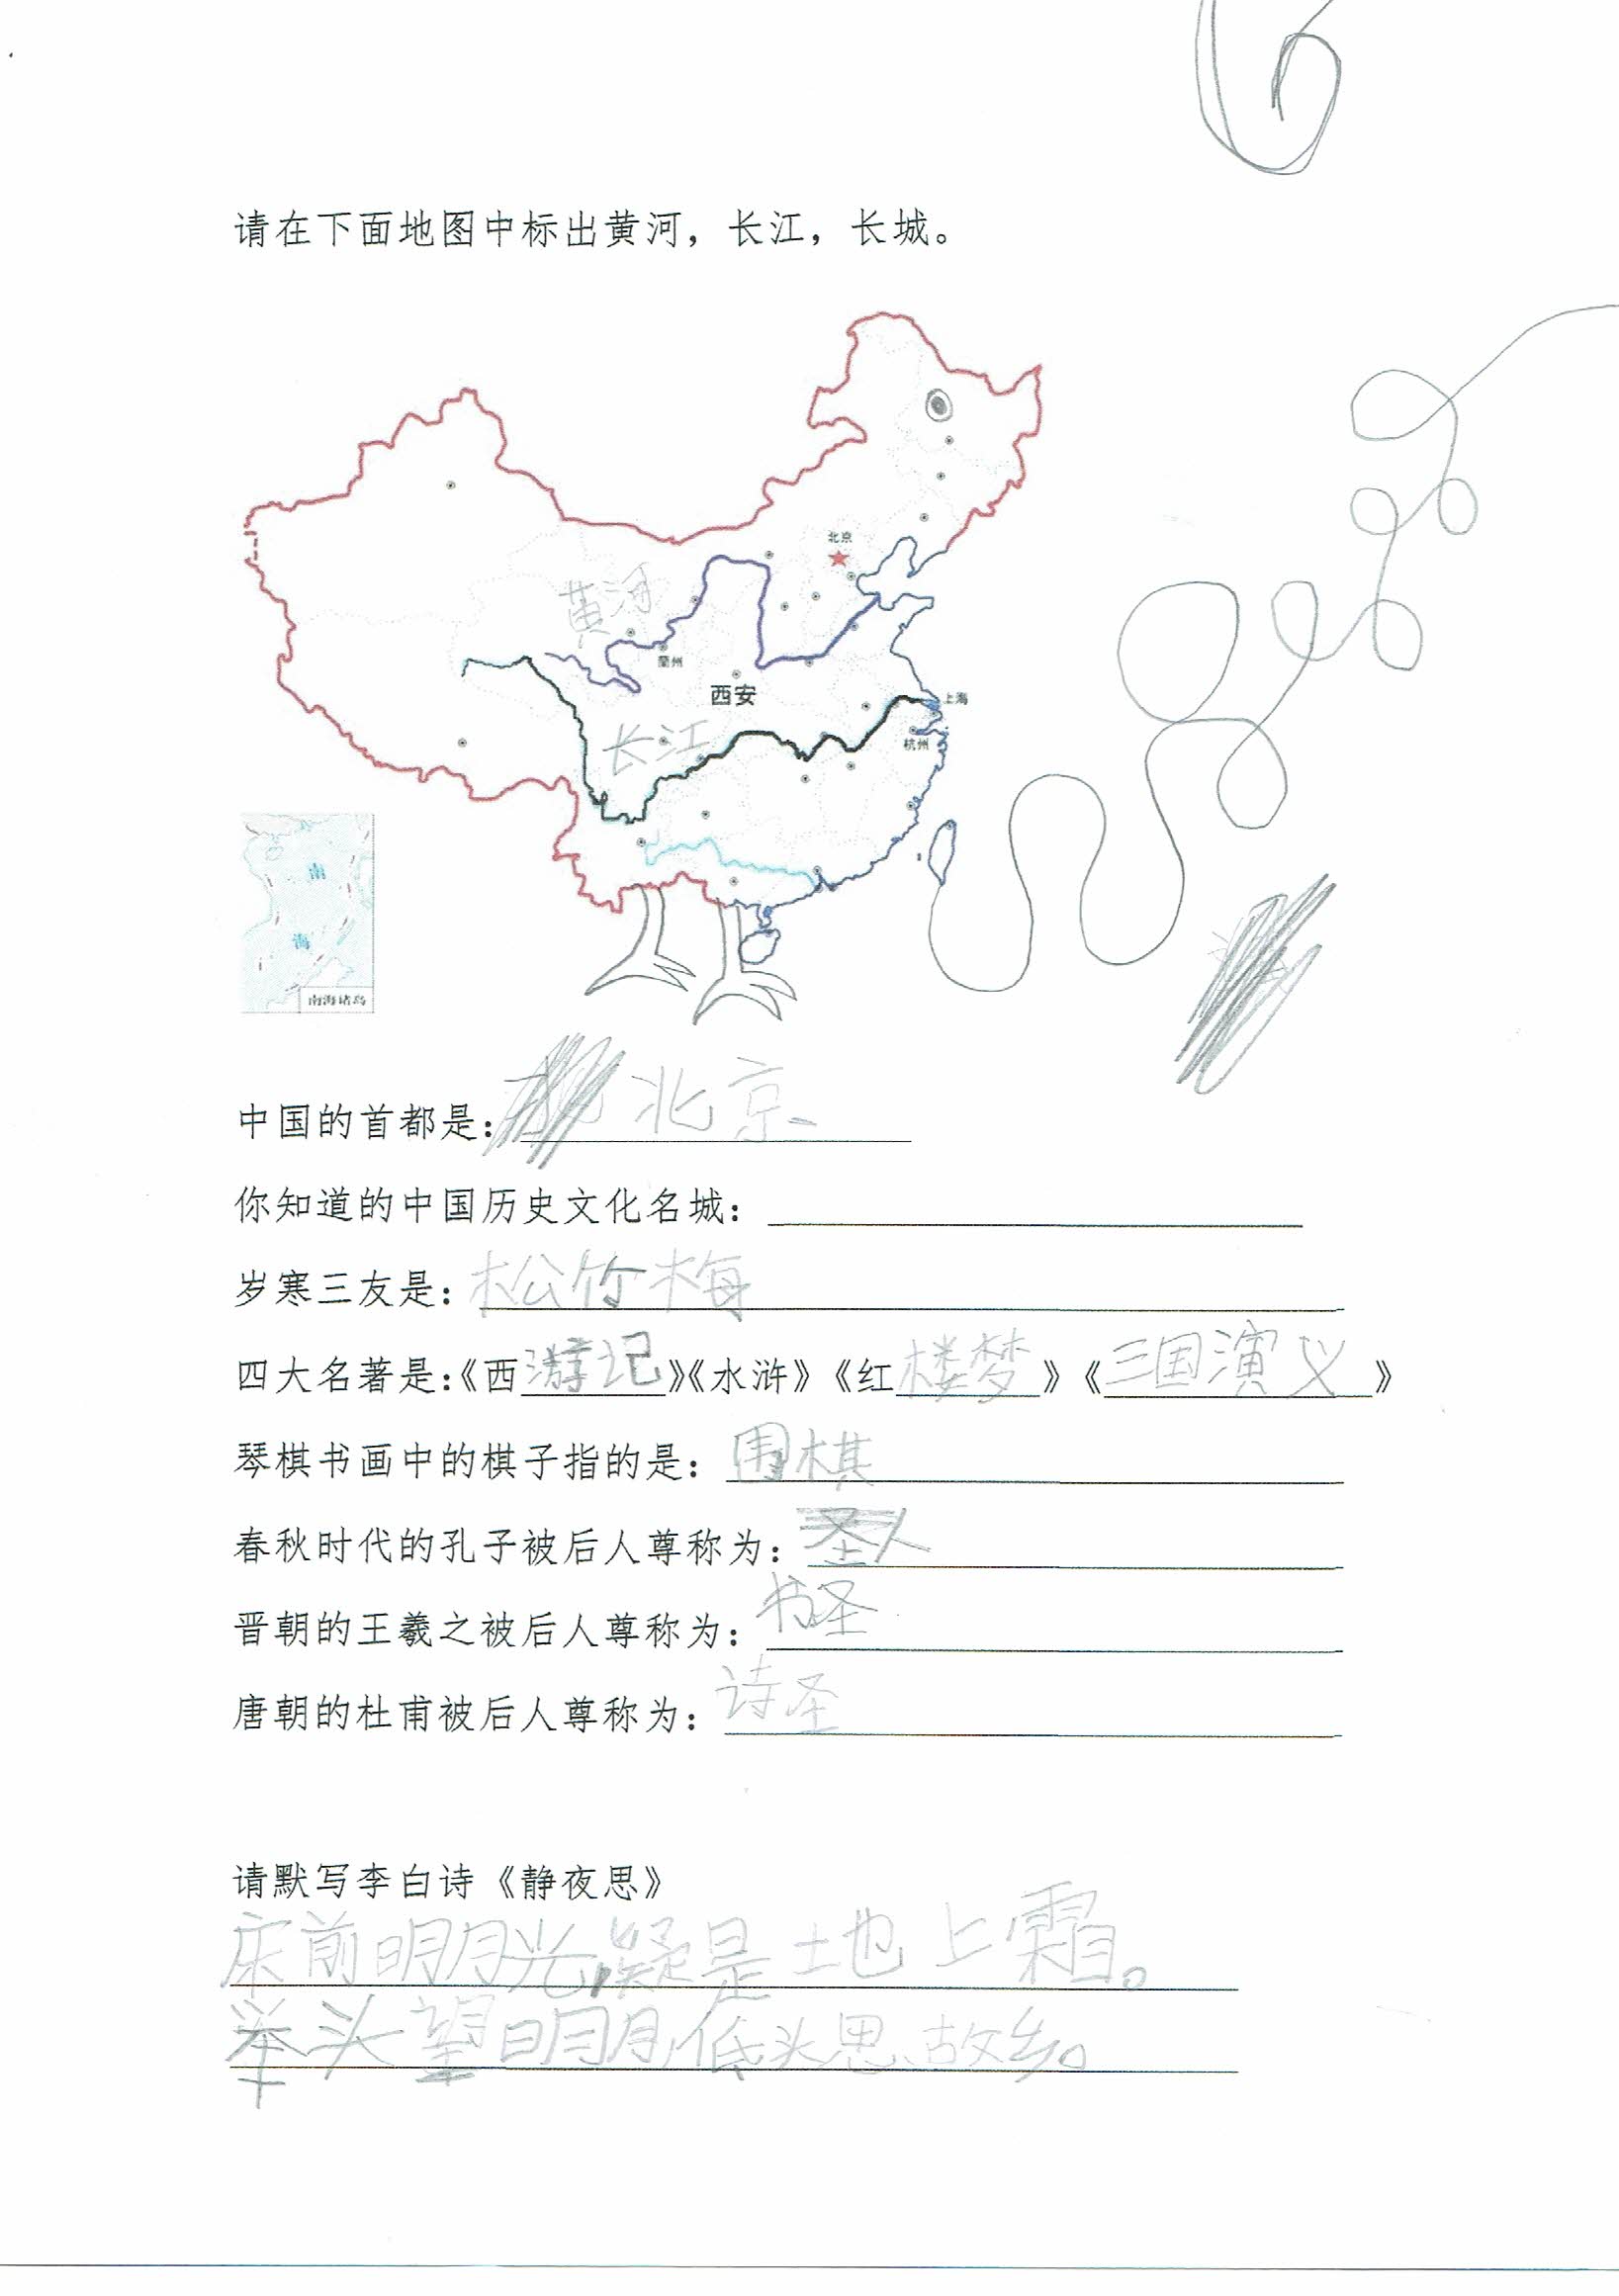 6
请在下面地图中标出黄河，长江，长城。
北京
黄河
蘭州
西安
上海
长江
杭州
南
海
南海诸岛
中国的首都是：北京
你知道的中国历史文化名城：
岁寒三友是：松竹梅
四大名著是：《西游记》《水浒》《红楼梦》《三国演义》
琴棋书画中的棋子指的是：围棋
春秋时代的孔子被后人尊称为：圣人
晋朝的王羲之被后人尊称为：书圣
唐朝的杜甫被后人尊称为：诗圣
请默写李白诗《静夜思》
床前明月光，疑是地上霜。
举头望明月，低头思故乡。